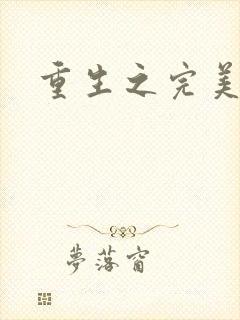 重生之完美
夢落窗